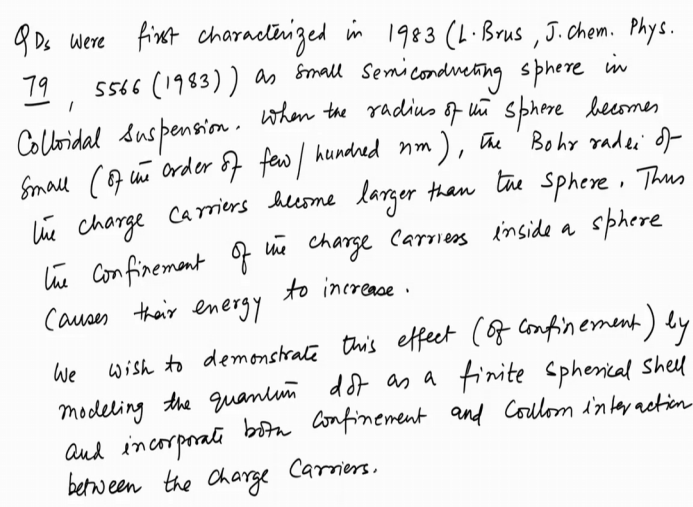 QDs were first characterized in 1983 (L. Brus, J. chem. Phys.
79, 5566 (1983)) as small semiconducting sphere in
Colloidal suspension. When the radius of the sphere becomes
small (of the order of few/hundred nm), the Bohr radii of
the charge carriers become larger than the sphere. Thus
the confinement of the charge carriers inside a sphere
causes their energy to increase.
We wish to demonstrate this effect (of confinement) by
modeling the quantum dot as a finite spherical shell
and incorporate both confinement and Coulom interaction
between the charge carriers.